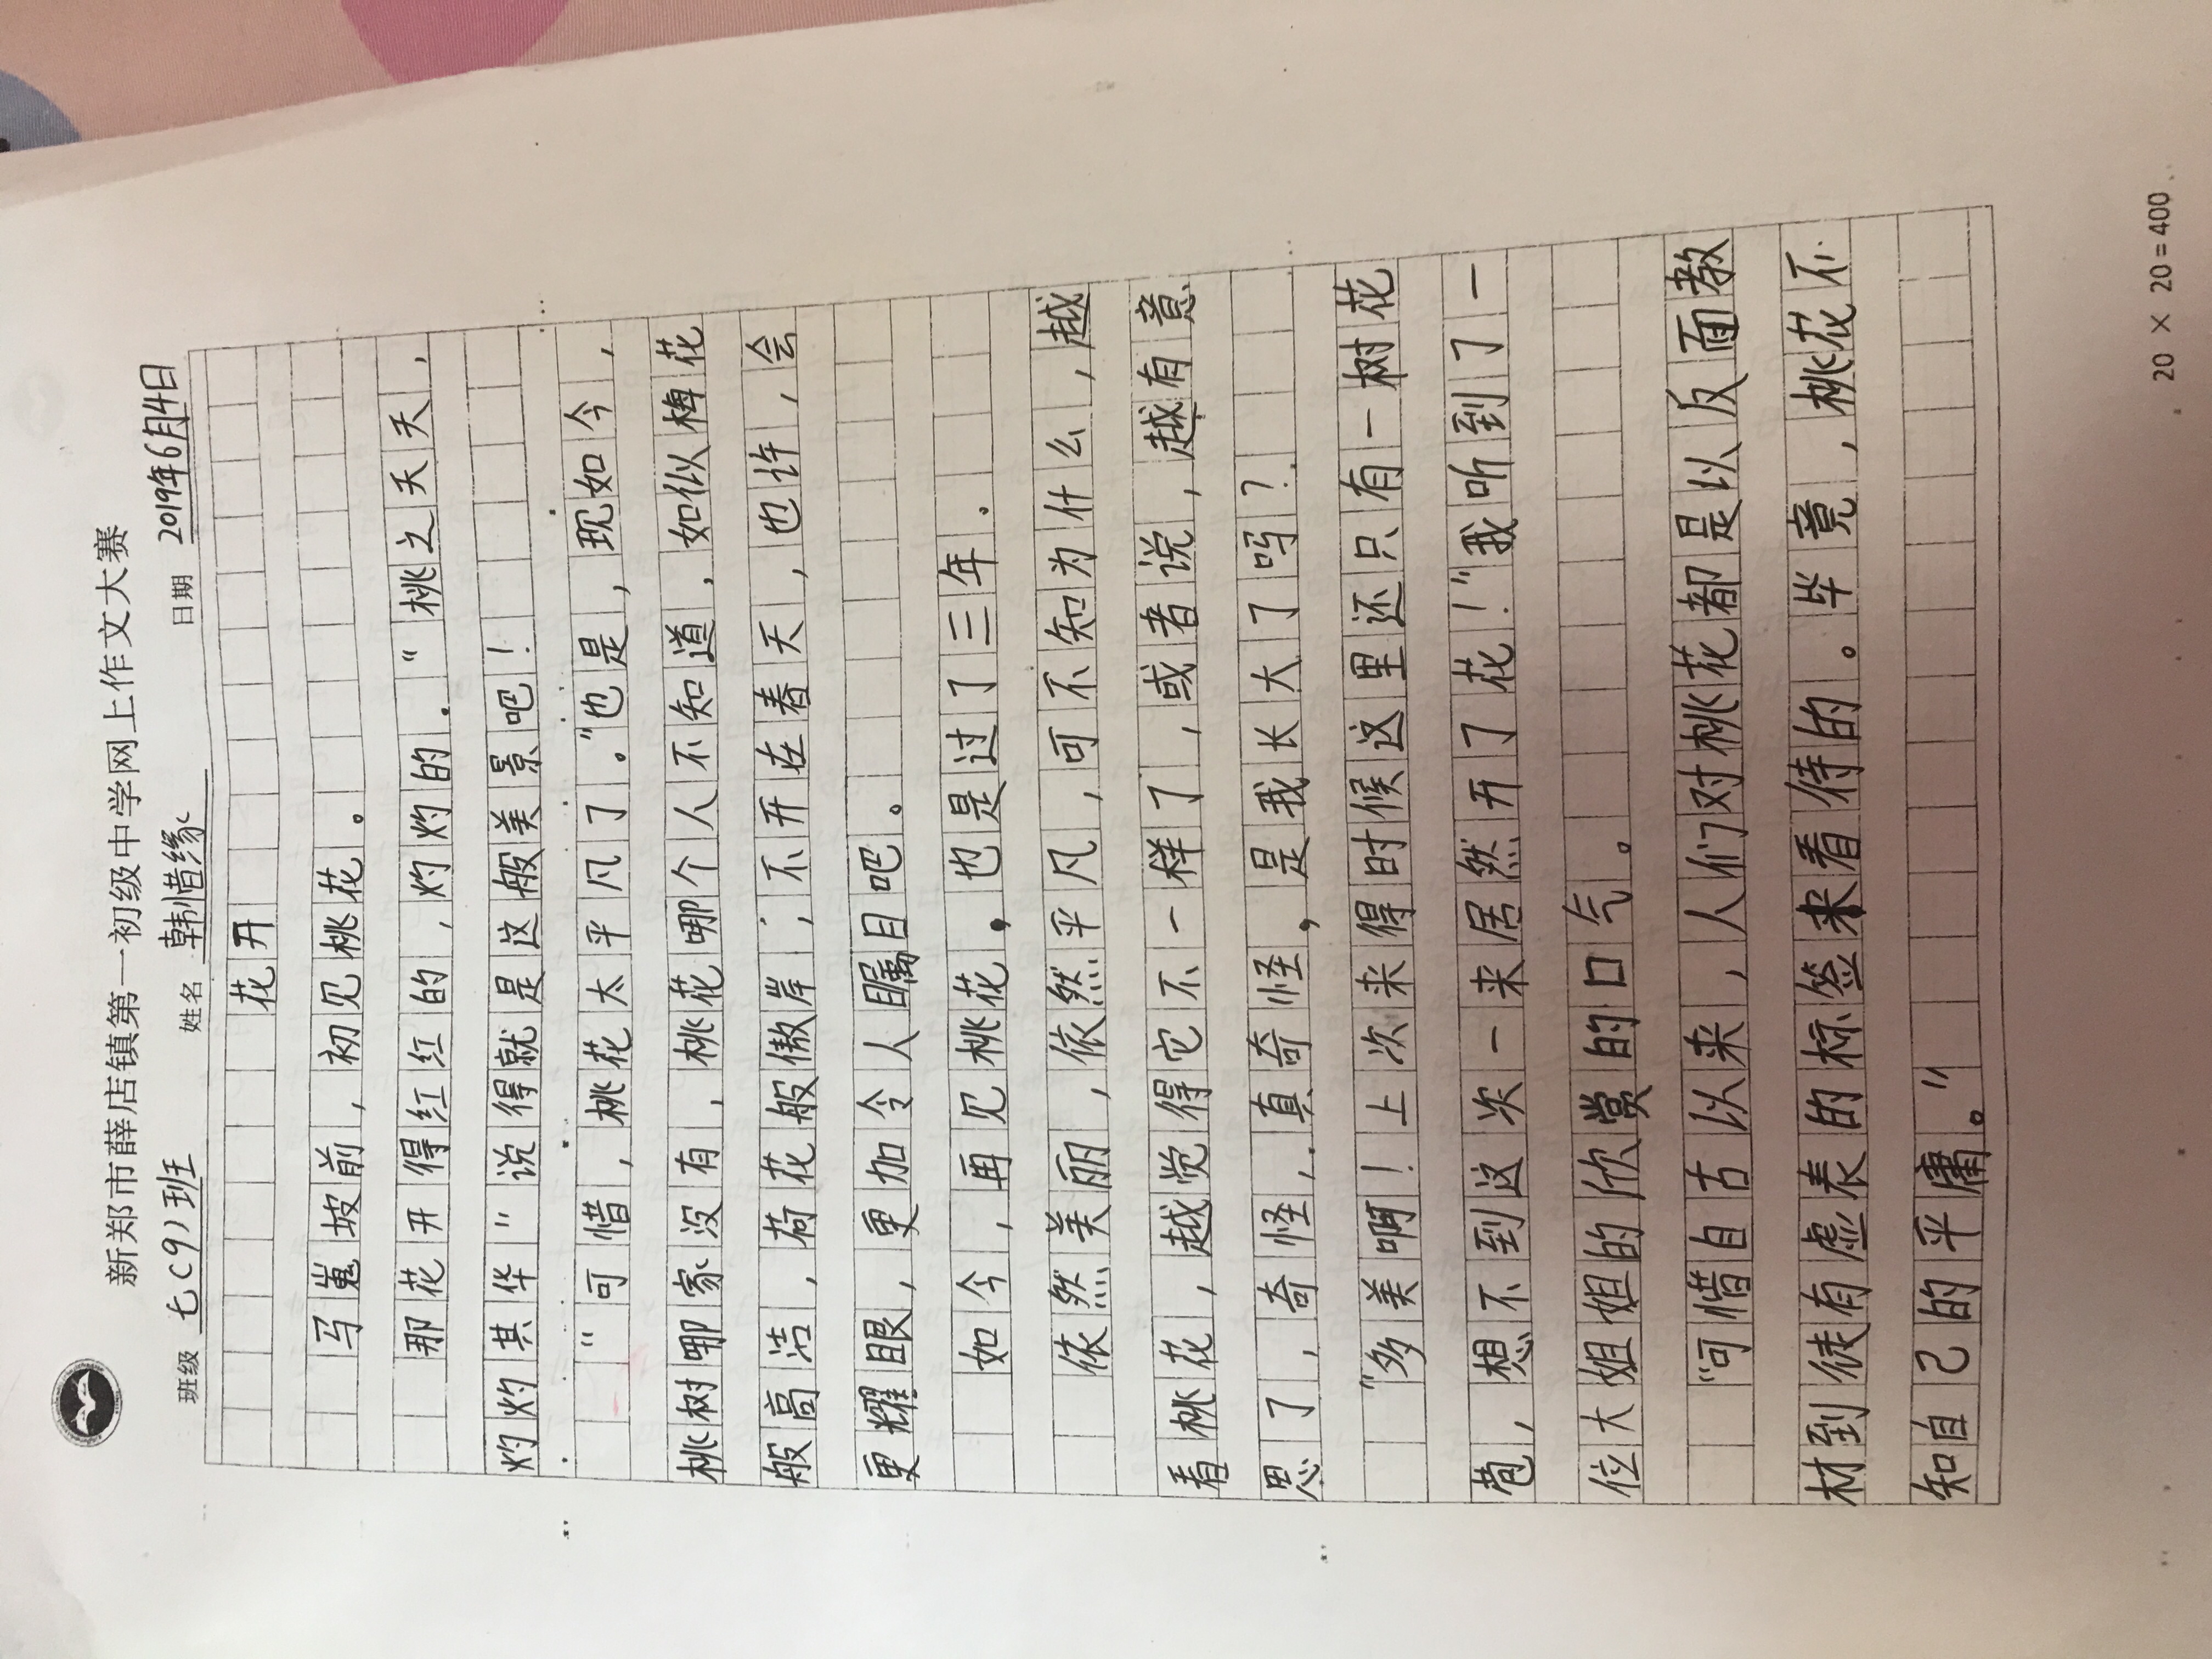 新郑市薛店镇第一初级中学网上作文大赛
班级 七(9)班 姓名 韩惜缘 日期 2019年6月4日
花开
马嵬坡前,初见桃花。
那花开得红红的,灼灼的."桃之夭夭,
灼灼其华"说得就是这般美景吧!
"可惜,桃花太平凡了。"也是,现如今,
桃树哪家没有,桃花哪个人不知道,如似梅花
般高洁,荷花般傲岸;不开在春天,也许,会
更耀眼,更加令人瞩目吧。
如今,再见桃花,也是过了三年.
依然美丽,依然平凡,可不知为什么,越
看桃花,越觉得它不一样了,或者说,越有意
思了,奇怪,真奇怪,是我长大了吗?
"多美啊!上次来得时候这里还只有一树花
苞,想不到这次一来居然开了花!"我听到了一
位大姐姐的欣赏的口气。
"可惜自古以来,人们对桃花都是以反面教
材到徒有虚表的标签来看待的。毕竟,桃花不
知自己的平庸。"
20×20=400